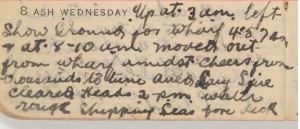 8 ASH WEDNESDAY Up at 3 am. left
Show Grounds for wharf 4.57 am
& at 8-10 am moved out
from wharf amidst cheers from
thousands to tune Auld Lang Syne
cleared Heads 2 pm. water
rough shipping seas fore deck